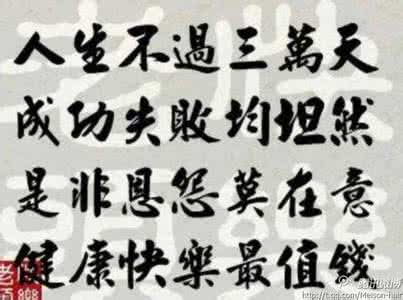 人生不過三萬天
成功失敗均坦然
是非恩怨莫在意
健康快樂最值錢
腾讯微博
http://t.qq.com/Meison-hair